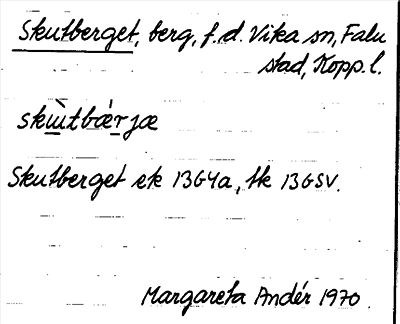 Skutberget, berg, f.d. Vika sn, Falu
stad, Kopp.l.
skɯ̀tbǽrjæ
Skutberget ek 13G4a, tk 13GSV.
Margareta Andér 1970.